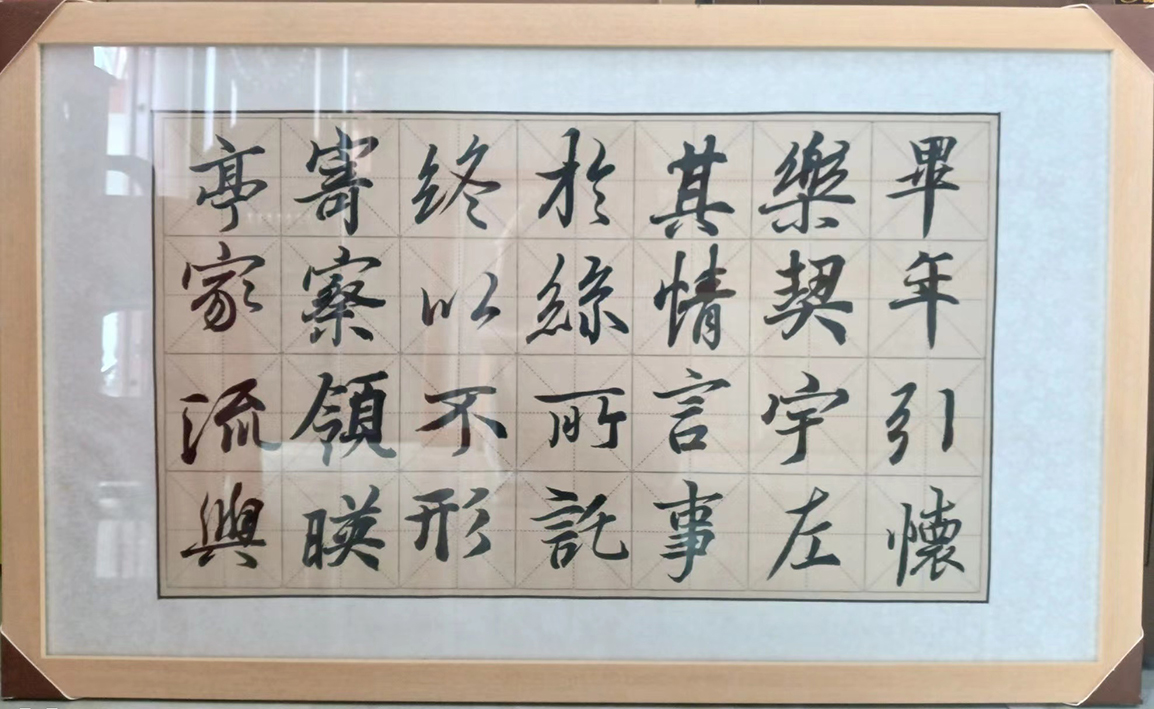 畢年引懷
樂契宇左
其情言事
於絲所託
终以不形
寄察領暎
亭家流興